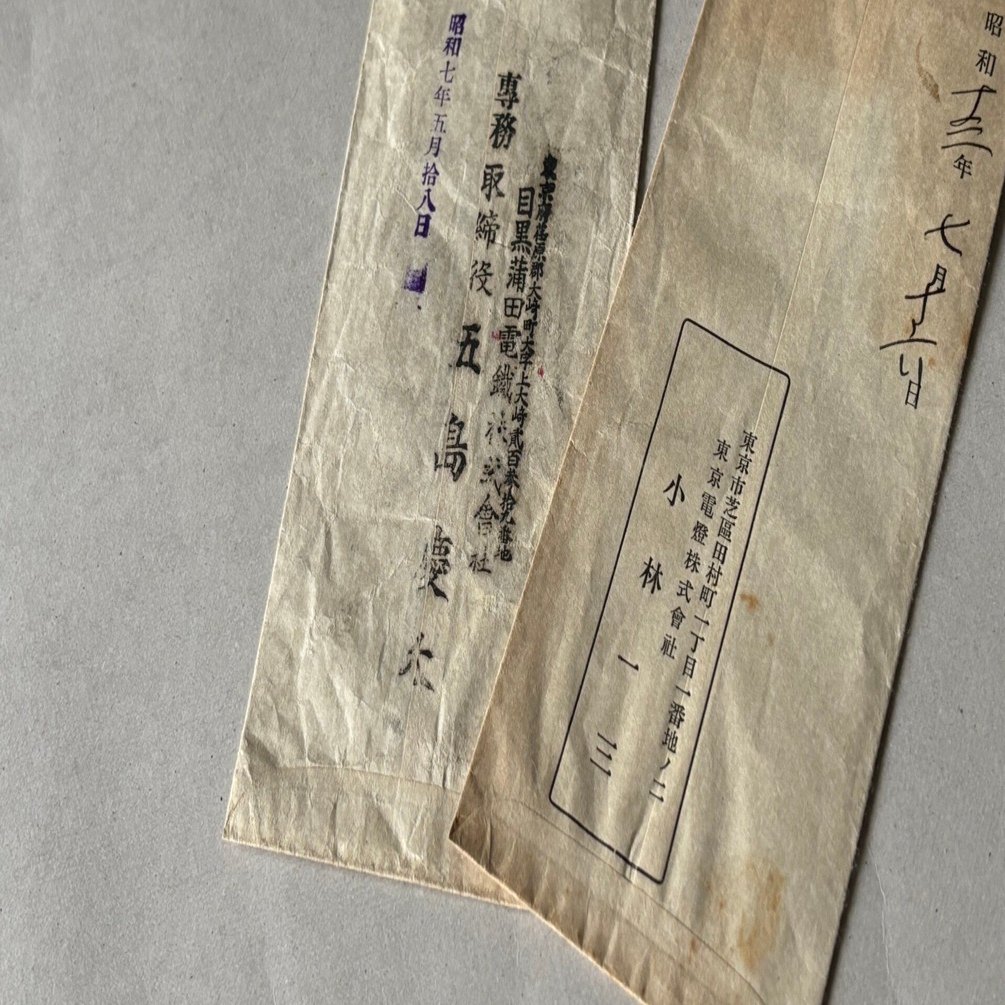 昭和十二年 七月十二日
東京市芝區田村町一丁目一番地ノ二
東京電燈株式會社
小林一三
東京府荏原郡大崎町大字上大崎貳百参拾九番地
目黒蒲田電鐵株式會社
専務取締役 五島慶太
昭和七年五月拾八日